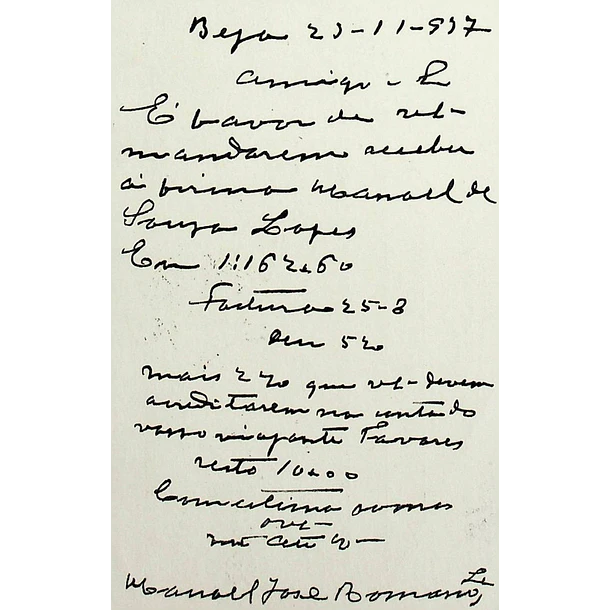 Beja 23-11-937
Amigo - Sr
É favor de vos-
mandarem receber
á firma Manoel de
Souza Lopes
Em 1:162$60
Factura 25-8
Den 520
mais 220 que vos- devem
acreditarem na conta do
vosso viajante Tavares
resto 10$00
Com estima somos
Manoel José Romano,